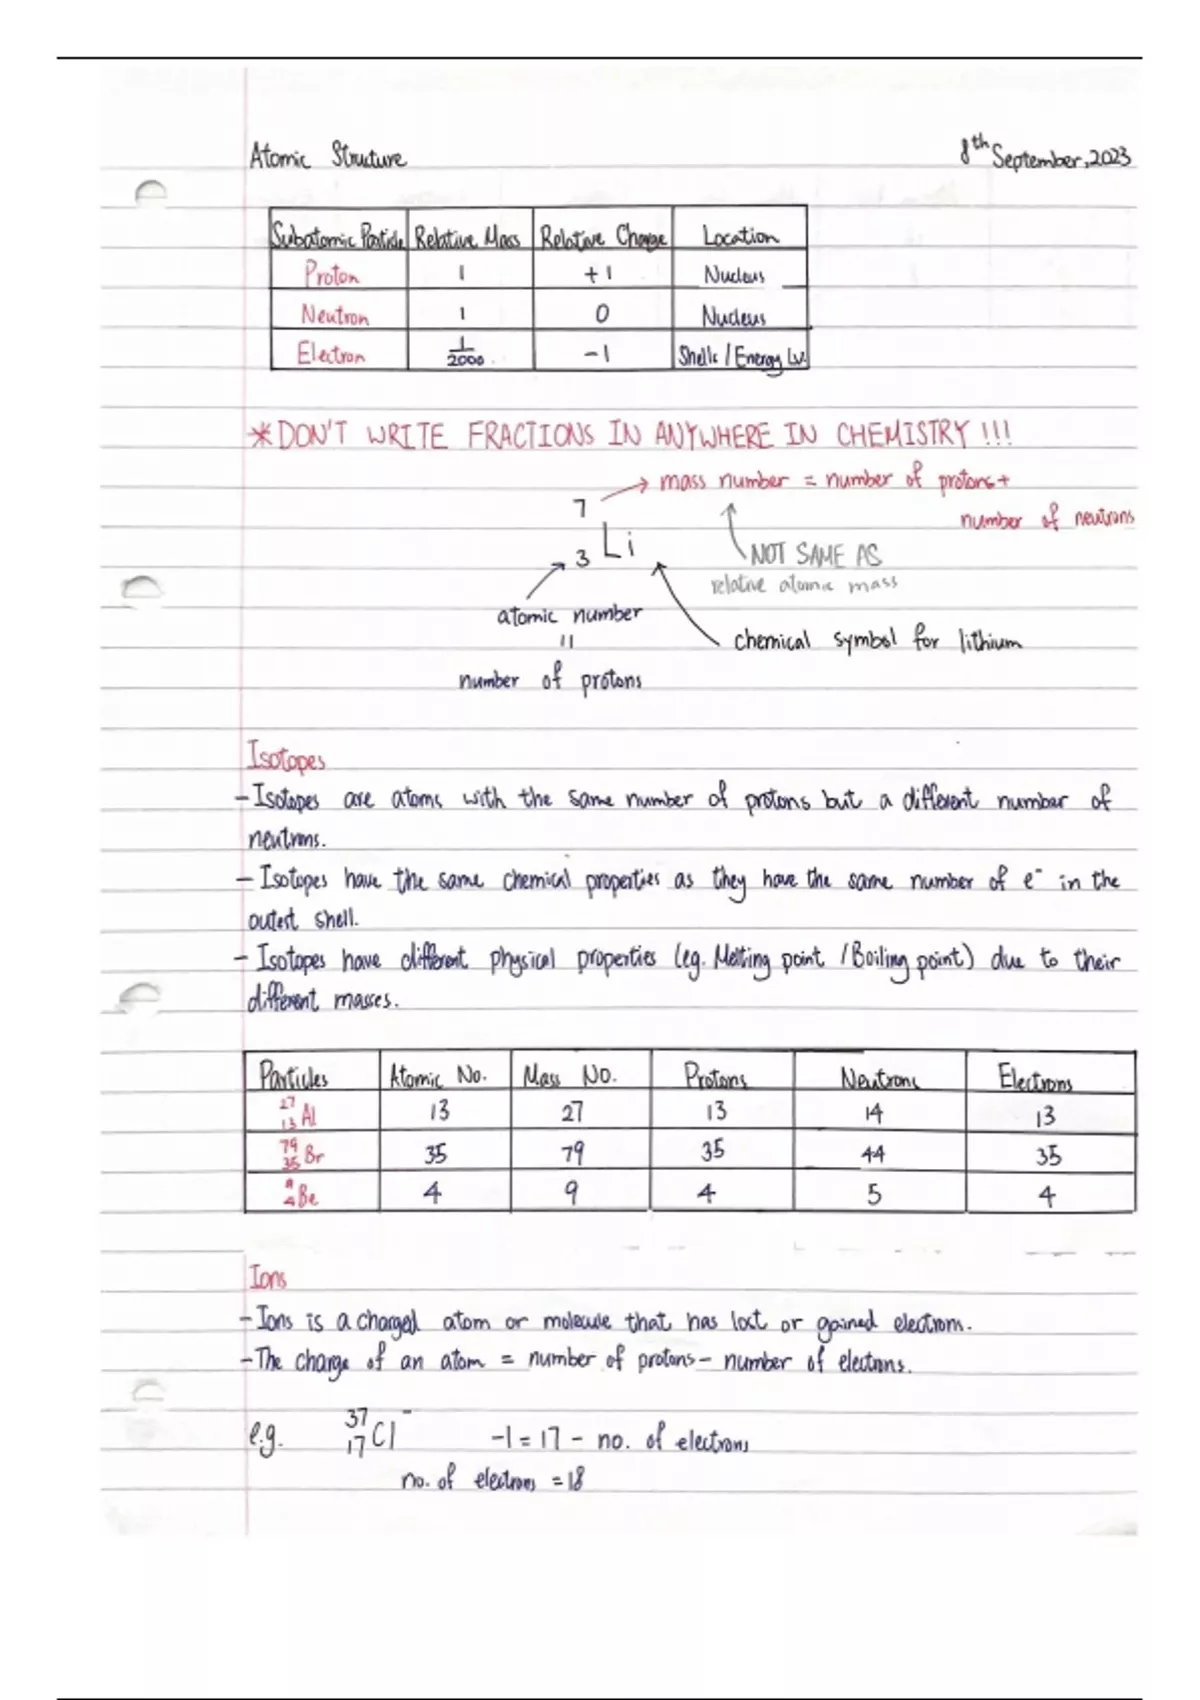 Atomic Structure 8th September, 2023
Subatomic Particle Relative Mass Relative Charge Location
Proton 1 +1 Nucleus
Neutron 1 0 Nucleus
Electron 1/2000 -1 Shells / Energy Lv.
*DON'T WRITE FRACTIONS IN ANYWHERE IN CHEMISTRY !!!
→ mass number = number of protons +
number of neutrons
7
3 Li
NOT SAME AS
relative atomic mass
atomic number
=
number of protons
chemical symbol for lithium
Isotopes
- Isotopes are atoms with the same number of protons but a different number of
neutrons.
- Isotopes have the same chemical properties as they have the same number of e⁻ in the
outest shell.
- Isotopes have different physical properties (eg. Melting point / Boiling point) due to their
different masses.
Particles Atomic No. Mass No. Protons Neutrons Electrons
27 13 Al 13 27 13 14 13
79 35 Br 35 79 35 44 35
9 4 Be 4 9 4 5 4
Ions
- Ions is a charged atom or molecule that has lost or gained electrons.
- The charge of an atom = number of protons - number of electrons.
e.g. 37 17 Cl⁻ -1 = 17 - no. of electrons
no. of electrons = 18